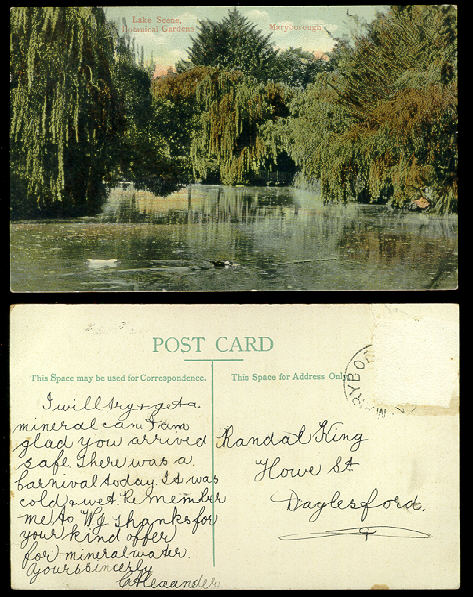 Lake Scene, Maryborough
Botanical Gardens
POST CARD
This Space may be used for Correspondence.
This Space for Address Only
RYBO
I will try & get a
mineral can I am
glad you arrived
safe. There was a
Carnival today. It was
cold & wet. Remember
me to W J thanks for
your kind offer
for mineral water.
Yours sincerly
C Alexander
Randal King
Howe St
Daylesford.